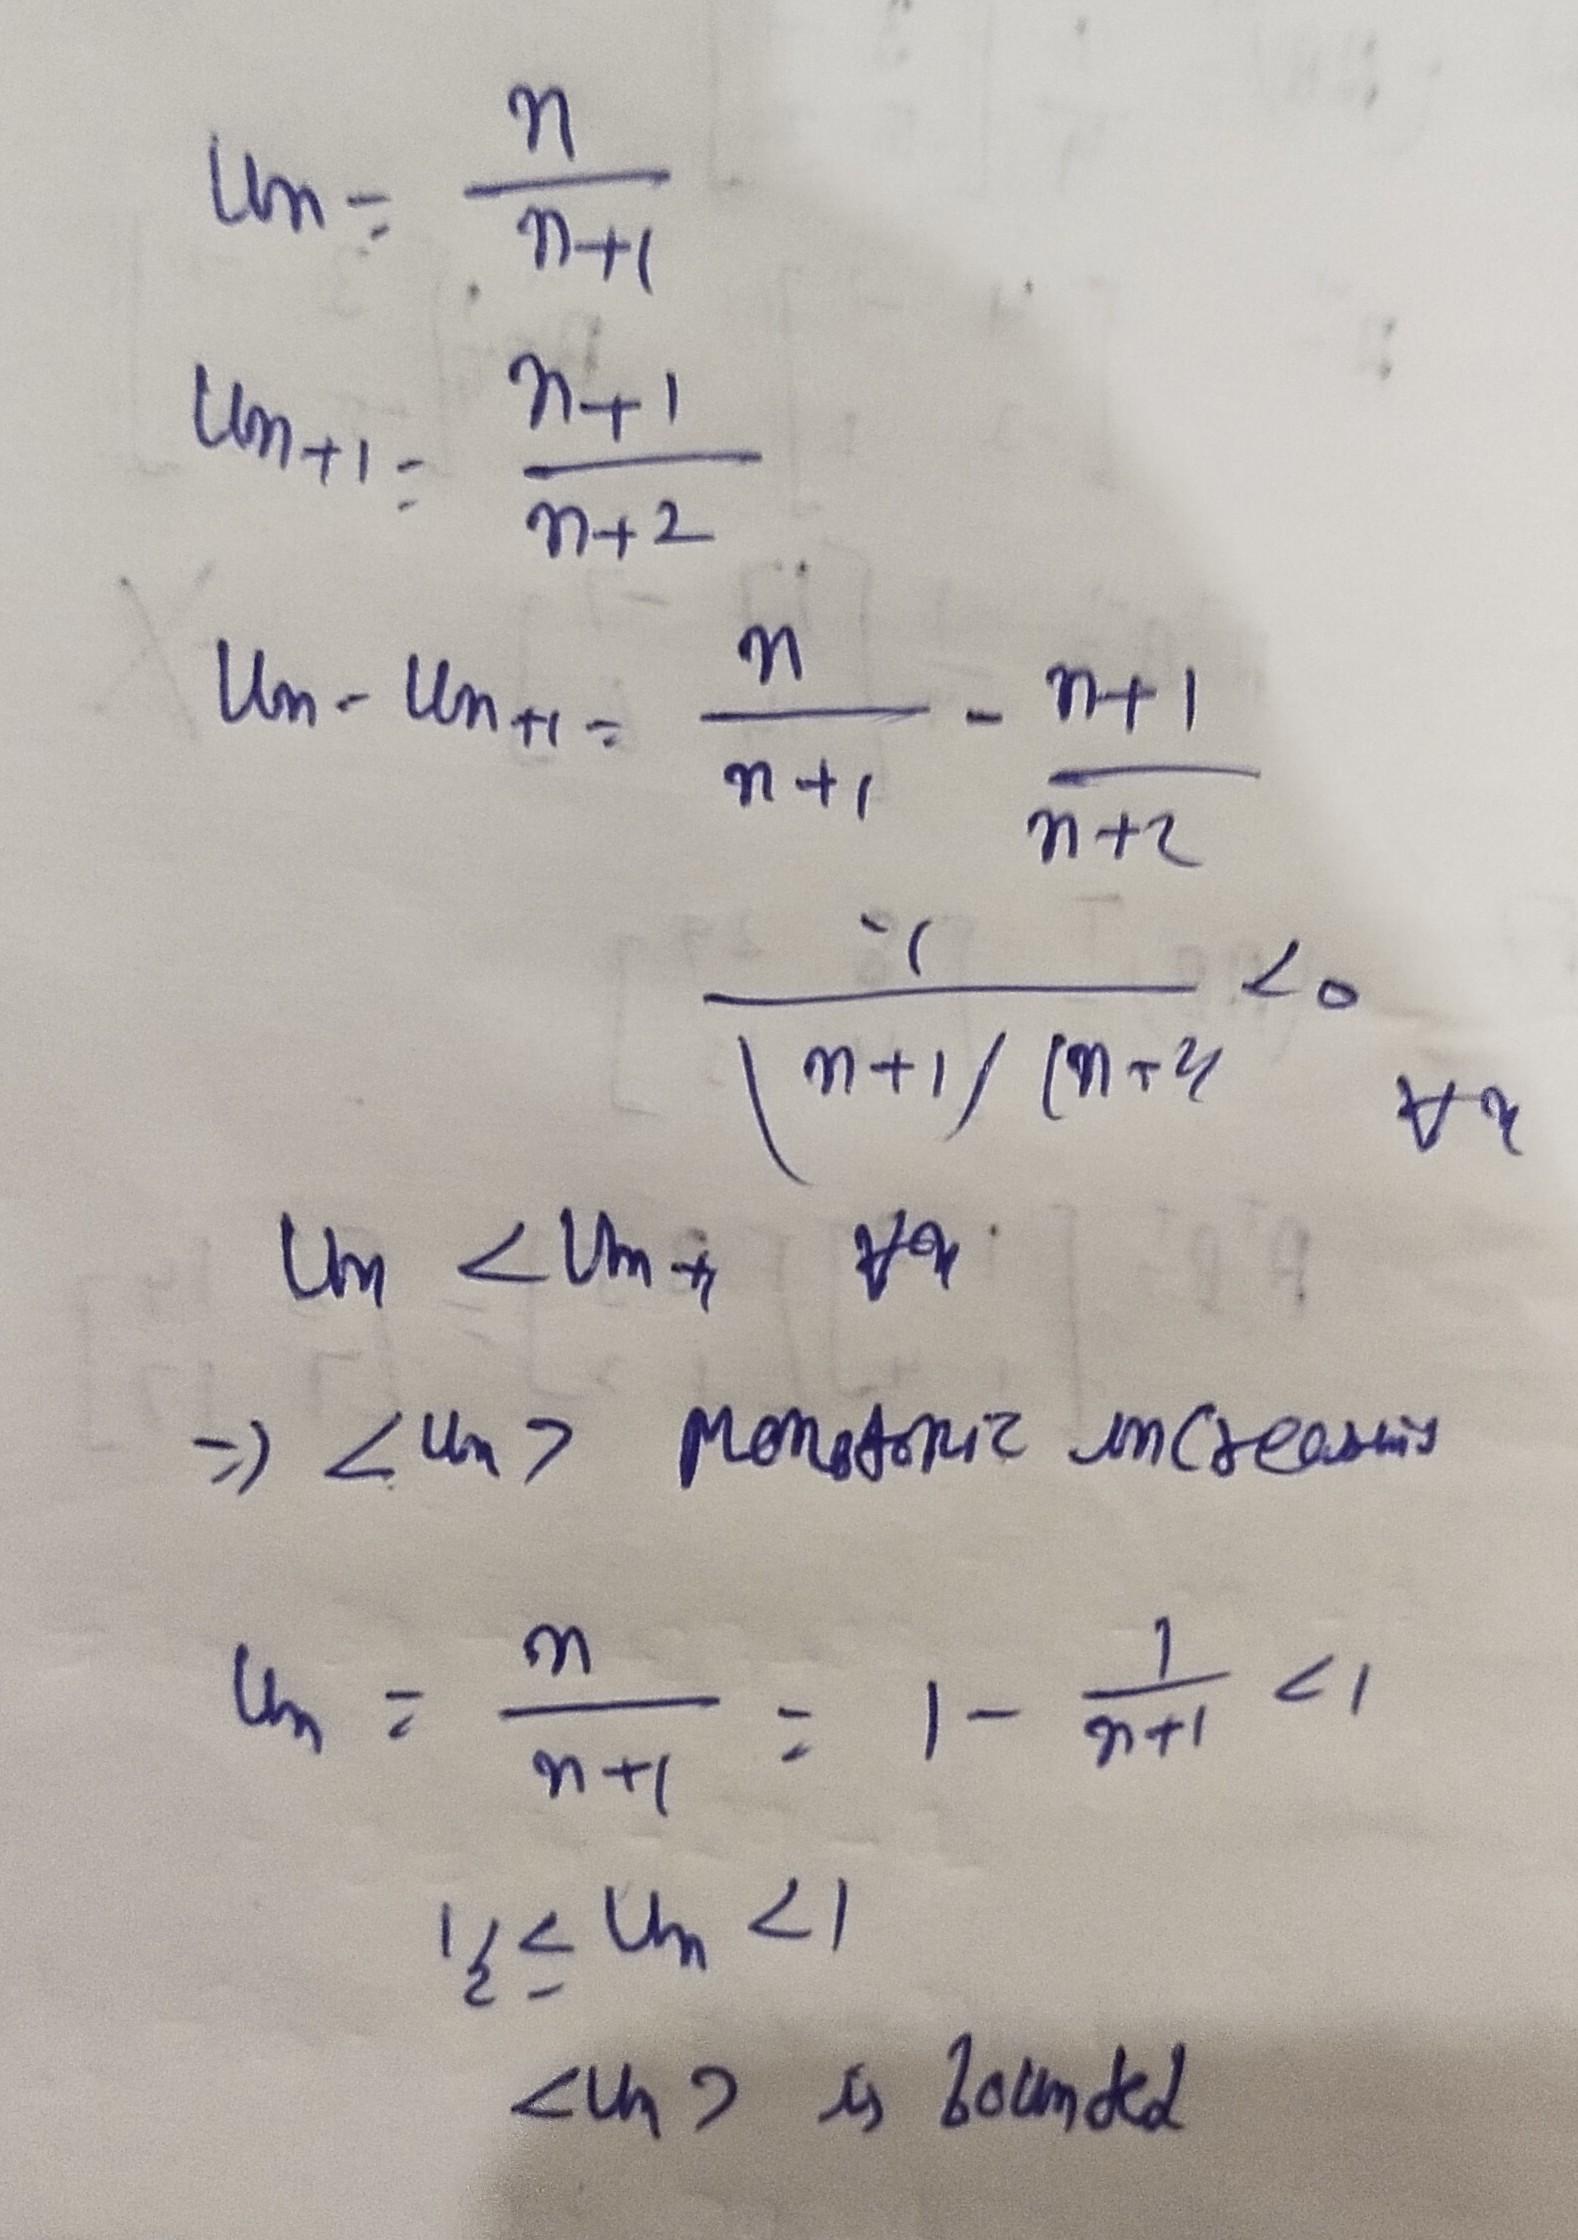 Un = n/(n+1)
Un+1 = (n+1)/(n+2)
Un - Un+1 = n/(n+1) - (n+1)/(n+2)
-1/((n+1)(n+2)) <0 ∀n
Un < Un+1 ∀n
=> <Un> Monotonic increasing
Un = n/(n+1) = 1 - 1/(n+1) <1
1/2 ≤ Un <1
<Un> is bounded